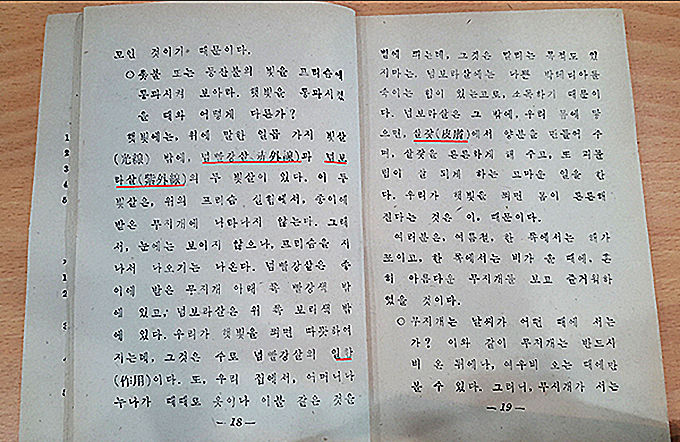 모인 것이기 때문이다.
○촛불 또는 등잔불의 빛을 프리슴에
통과시켜 보아라. 햇빛을 통과시켰
을 때와 어떻게 다른가?
햇빛에는, 위에 말한 일곱 가지 빛살
(光線) 밖에, 넘빨강살(赤外線)과 넘보
라살(紫外線)의 두 빛살이 있다. 이 두
빛살은, 위의 프리슴 실험에서, 종이에
받은 무지개에 나타나지 않는다. 그래
서, 눈에는 보이지 않으나, 프리슴을 지
나서 나오기는 나온다. 넘빨강살은 종
이에 받은 무지개 아래 쪽 빨강색 밖
에 있고, 넘보라살은 위 쪽 보라색 밖
에 있다. 우리가 햇빛을 쬐면 따뜻하여
지는데, 그것은 주로 넘빨강살의
(作用)이다. 또, 우리 집에서, 어머니나
누나가 때때로 옷이나 이불 같은 것을
— 18 —
볕에 쬐는데, 그것은 말리는 목적도 있
지마는, 넘보라살에는 나쁜 박테리아를
죽이는 힘이 있는고로, 소독하기 때문이
다. 넘보라살은 그 밖에, 우리 몸에 닿
으면, 살갗(皮膚)에서 양분을 만들어 주
며, 살갗을 튼튼하게 해 주고, 또 피돌
림이 잘 되게 하는 고마운 일을 한
다. 우리가 햇빛을 쬐면 몸이 튼튼해
진다는 것은 이 때문이다.
여러분은, 여름철, 한 쪽에서는 해가
쪼이고, 한 쪽에서는 비가 올 때에, 흔
히 아름다운 무지개를 보고 즐거워하
였을 것이다.
○무지개는 날씨가 어떤 때에 서는
가? 이와 같이 무지개는 반드시
비 온 뒤에나, 여우비 오는 때에만
볼 수 있다. 그러니, 무지개가 서는
— 19 —